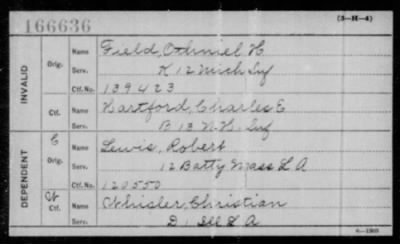 166636
(3-H-4)
INVALID
Orig.
Name Field, Othniel H
Serv. K 12 Mich Inf
Ctf. No. 139423
Ctf.
Name Hartford, Charles E
Serv. B 13 N.H. Inf
DEPENDENT
C
Orig.
Name Lewis, Robert
Serv. 12 Batty Mass L A
Ctf. No. 120550
Ctf.
Name Whisler, Christian
Serv. D 1 Ill L A